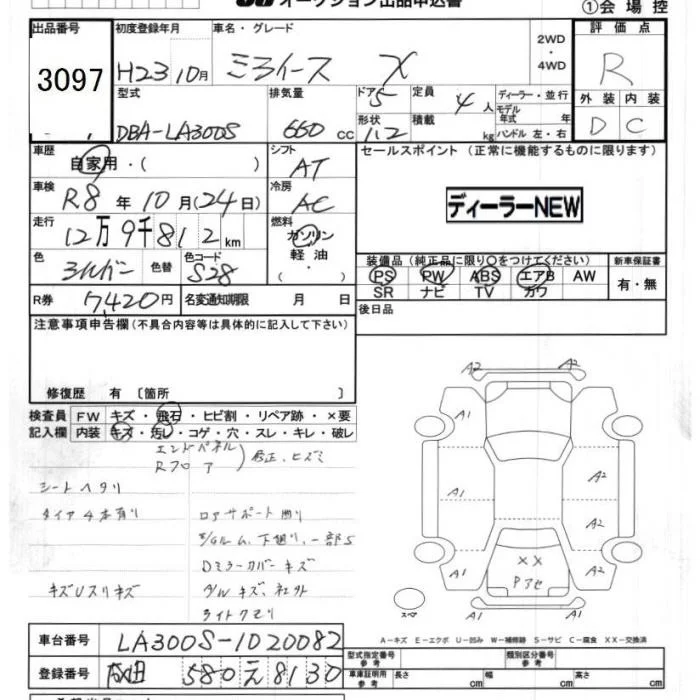 オークション出品申込書
①会場控
出品番号 初度登録年月 車名・グレード 評価点
3097 H23 10月 ミライース X 2WD・4WD R
型式 排気量 ドア 5 定員 4人 ディーラー・並行 外装 内装
DBA-LA300S 660 cc 形状 積載 kg モデル年式 年 D C
ハンドル 左・右
車歴 自家用・( ) シフト AT セールスポイント (正常に機能するものに限ります)
車検 R8年10月(24日) 冷房 AC ディーラーNEW
走行 12万9千812km 燃料 ガソリン 軽油・
色 シルバー 色替 色コード S28
装備品(純正品に限り○をつけてください) 新車保証書
PS PW ABS エアB AW 有・無
SR ナビ TV カワ
R券 7,420円 名変通知期限 月 日 後日品
注意事項申告欄(不具合内容等は具体的に記入して下さい)
修復歴 有 〔箇所 〕
検査員記入欄 FW キズ・飛石・ヒビ割・リペア跡・×要
内装 キズ・汚レ・コゲ・穴・スレ・キレ・破レ
エンドパネル
Rフロア 修正、ヒズミ
シートヘタリ
タイヤ4本有り ロアサポート曲り
下廻り、一部S
Dミラーカバーキズ
キズUスリキズ キズ、社外
ライトクモリ
A2 A2
A1
A2
A1 A2
A1 XX A1
Pアセ
スペア
A-キズ E-エクボ U-凹み W-補修跡 S-サビ C-腐食 XX-交換済
車台番号 LA300S-1020082
登録番号 成田 580 え 8130
型式指定番号 参考 類別区分番号 参考
車庫証明用 参考 長さ cm 幅 cm 高さ cm